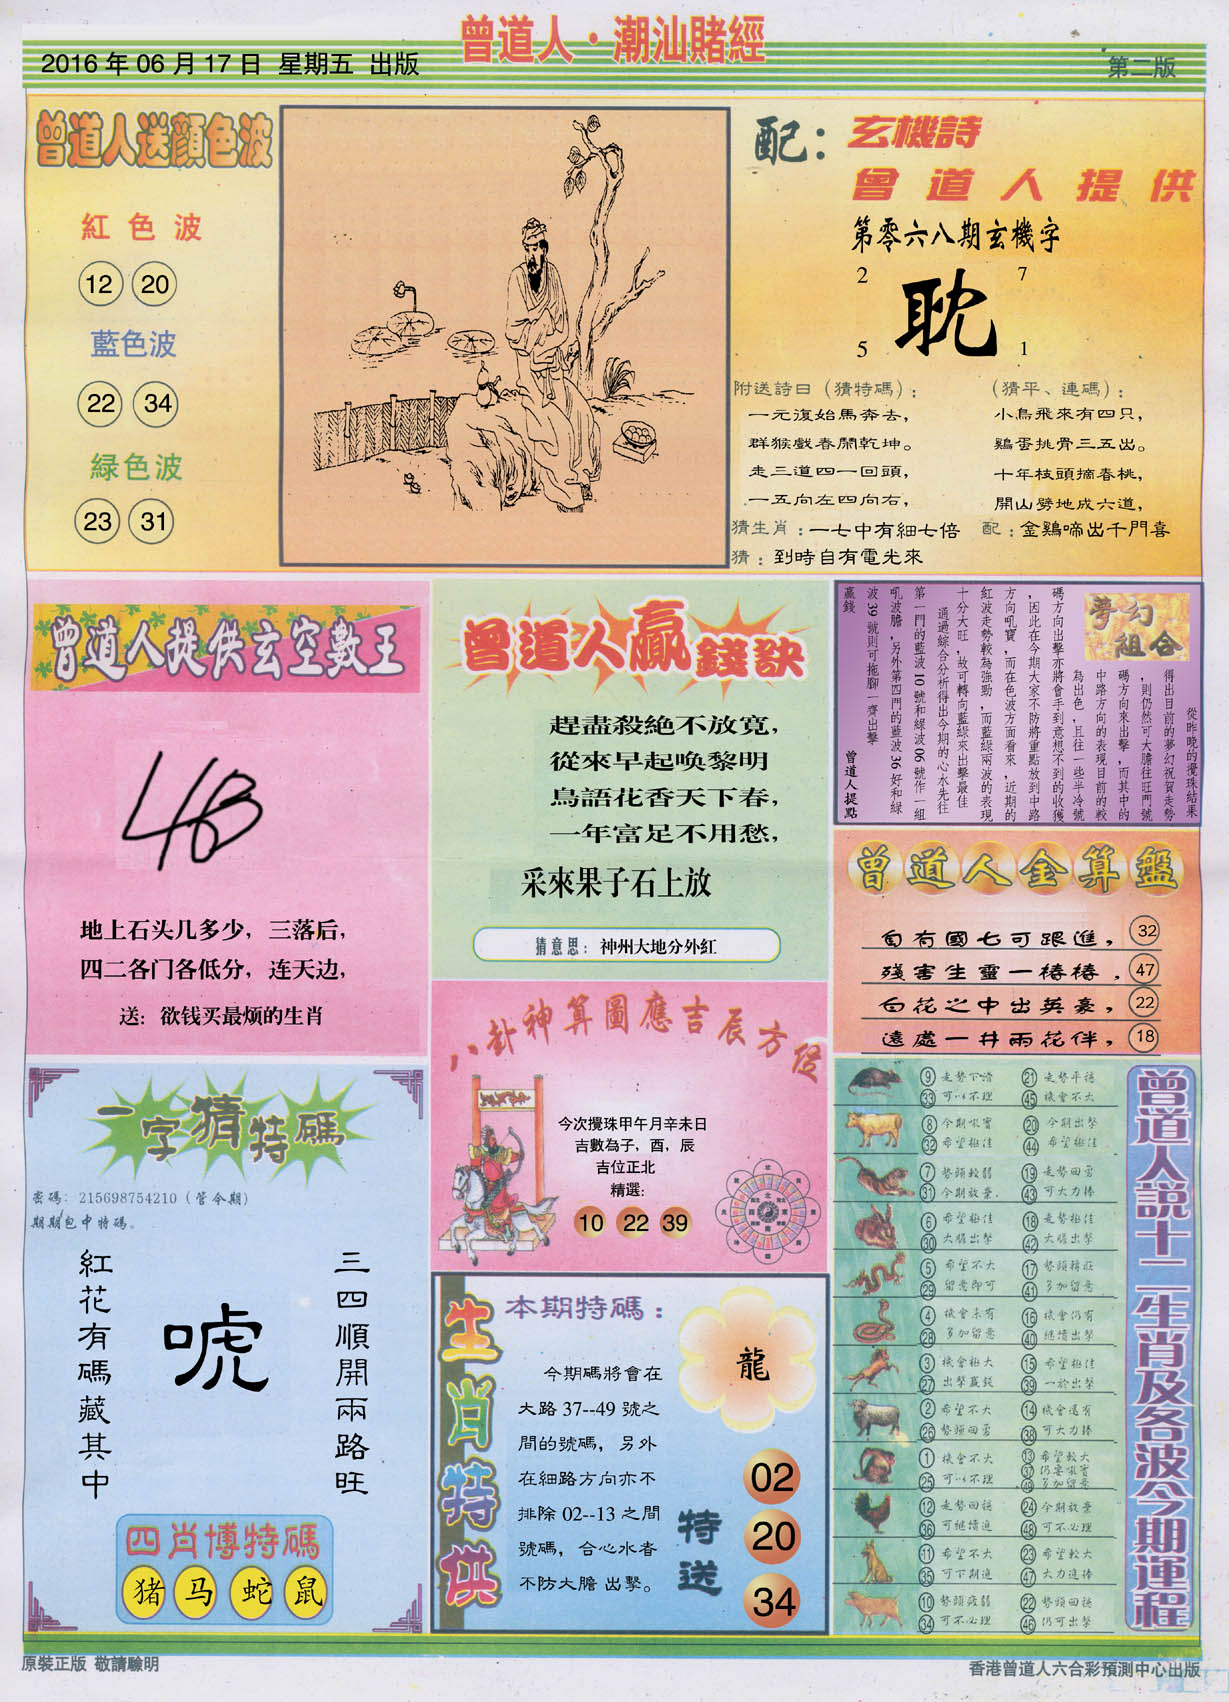 曾道人·潮汕賭經
2016 年 06 月 17 日 星期五 出版
第二版
曾道人送顏色波
紅色波
12 20
藍色波
22 34
緑色波
23 31
配：玄機詩
曾道人提供
第零六八期玄機字
2 7
耽
5 1
附送詩曰（猜特碼）：
一元復始馬奔去，
群猴戲春鬧乾坤。
走三道四一回頭，
一五向左四向右，
（猜平、連碼）：
小鳥飛來有四只，
鷄蛋挑骨三五出。
十年枝頭摘春桃，
開山劈地成六道，
猜生肖：一七中有細七倍
配：金鷄啼出千門喜
猜：到時自有電光來
曾道人提供玄空數王
地上石头几多少，三落后，
四二各门各低分，连天边，
送：欲钱买最烦的生肖
曾道人贏錢訣
趕盡殺絕不放寬，
從來早起喚黎明
鳥語花香天下春，
一年富足不用愁，
采來果子石上放
猜意思：神州大地分外紅
夢幻
組合
從昨晚的攪珠結果
得出目前的夢幻祝賀走勢
，則仍然可大膽往旺門號
碼方向來出擊，而其中的
中路方向的表現目前的較
為出色，且往一些半冷號
碼方向出擊亦將會手到意想不到的收獲
，因此在今期大家不防將重點放到中路
方向吼寶，而在色波方面看來，近期的
紅波走勢較為強勁，而藍綠兩波的表現
十分大旺，故可轉向藍綠來出擊最佳
通過綜合分析得出今期的心水先往
第一門的藍波 10 號和綠波 06 號作一組
吼波膽，另外第四門的藍波 36 好和綠
波 39 號則可拖腳一齊出擊
贏錢
曾道人提點
曾道人金算盤
自有國七可跟進， 32
殘害生靈一樁樁， 47
白花之中出英豪， 22
遠處一井兩花伴， 18
八卦神算圖應吉辰方位
今次攪珠甲午月辛未日
吉數為子，酉，辰
吉位正北
精選：
10 22 39
一字猜特碼
密碼：215698754210（管令期）
期期包中特碼。
紅花有碼藏其中
唬
三四順開兩路旺
四肖博特碼
猪 马 蛇 鼠
生肖特供
本期特碼：
龍
今期碼將會在
大路 37--49 號之
間的號碼，另外
在細路方向亦不
排除 02--13 之間
號碼，合心水者
不防大膽 出擊。
特送
02
20
34
曾道人説十二生肖及各波今期運程
9 走勢下滑 21 走勢平穩
33 可以不理 45 機會不大
8 今期吼寶 20 今期出擊
32 希望極佳 44 希望極佳
7 勢頭較弱 19 走勢回勇
31 今期放棄。 43 可大力捧
6 希望極佳 18 走勢極佳
30 大膽出擊 42 大膽出擊
5 希望不大 17 勢頭轉旺
29 留意即可 41 多加留意
4 機會未有 16 機會仍有
28 多加留意 40 繼續出擊
3 機會極大 15 希望極佳
27 出擊贏錢 39 一於出擊
2 希望不大 14 機會還有
26 勢頭回勇 38 可大力捧
1 機會不大 13 希望較大
25 可以不理 37 仍要吼寶
49 多加留意
12 走勢回穩 24 今期放棄
36 可繼續進 48 可不必理
11 希望不大 23 希望較大
35 可下期進 47 大力進捧
10 勢頭疲弱 22 勢頭回穩
34 可不必理 46 仍可出擊
原裝正版 敬請驗明
香港曾道人六合彩預測中心出版